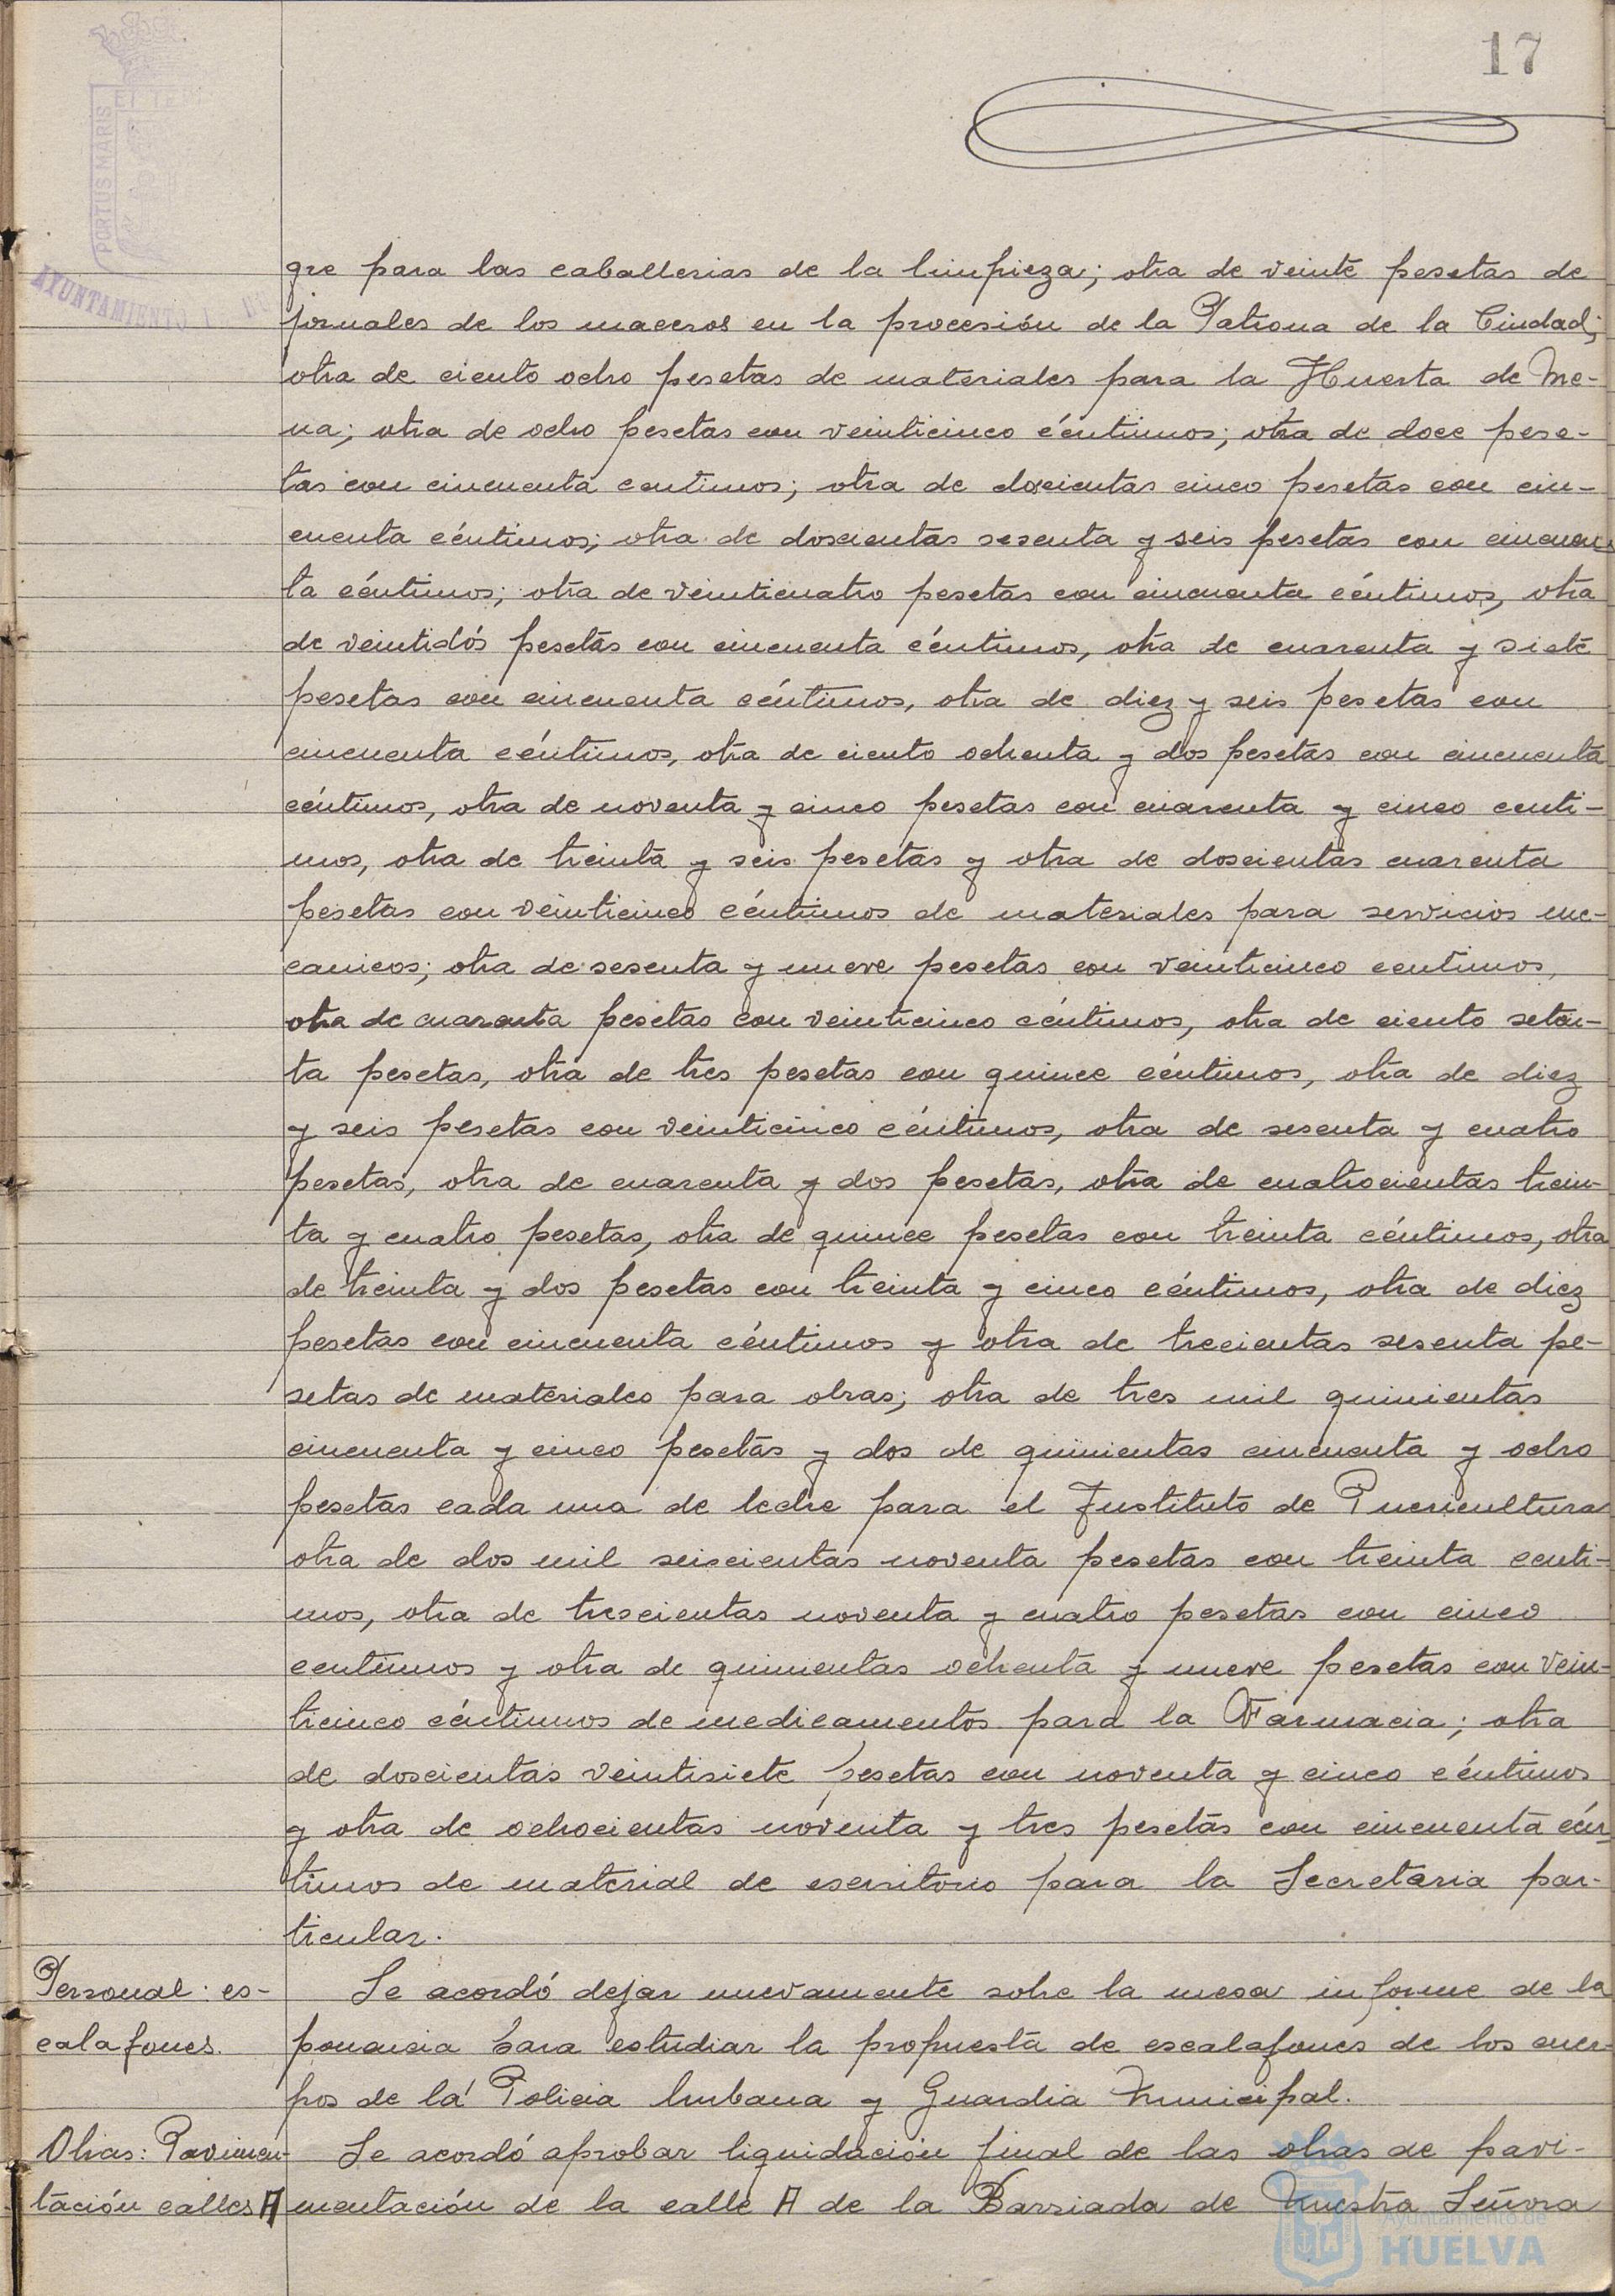 17
PORTUS MARIS
ET TER
AYUNTAMIENTO
gre para las caballerias de la limpieza; otra de veinte pesetas de
jornales de los maceros en la procesión de la Patrona de la Ciudad;
otra de ciento ocho pesetas de materiales para la Huerta de Me-
na; otra de ocho pesetas con veinticinco céntimos; otra de doce pese-
tas con cincuenta centimos; otra de doscientas cinco pesetas con cin-
cuenta céntimos; otra de doscientas sesenta y seis pesetas con cincuen-
ta céntimos; otra de veinticuatro pesetas con cincuenta céntimos, otra
de veintidós pesetas con cincuenta céntimos, otra de cuarenta y siete
pesetas con cincuenta céntimos, otra de diez y seis pesetas con
cincuenta céntimos, otra de ciento ochenta y dos pesetas con cincuenta
céntimos, otra de noventa y cinco pesetas con cuarenta y cinco centi-
mos, otra de treinta y seis pesetas y otra de doscientas cuarenta
pesetas con veinticinco céntimos de materiales para servicios me-
canicos; otra de sesenta y nueve pesetas con veinticinco centimos,
otra de cuarenta pesetas con veinticinco céntimos, otra de ciento seten-
ta pesetas, otra de tres pesetas con quince céntimos, otra de diez
y seis pesetas con veinticinco céntimos, otra de sesenta y cuatro
pesetas, otra de cuarenta y dos pesetas, otra de cuatrocientas trein-
ta y cuatro pesetas, otra de quince pesetas con treinta céntimos, otra
de treinta y dos pesetas con treinta y cinco céntimos, otra de diez
pesetas con cincuenta céntimos y otra de trecientas sesenta pe-
setas de materiales para obras; otra de tres mil quinientas
cincuenta y cinco pesetas y dos de quinientas cincuenta y ocho
pesetas cada una de leche para el Instituto de Puericultura
otra de dos mil seiscientas noventa pesetas con treinta centi-
mos, otra de trescientas noventa y cuatro pesetas con cinco
centimos y otra de quinientas ochenta y nueve pesetas con vein-
ticinco céntimos de medicamentos para la Farmacia; otra
de doscientas veintisiete pesetas con noventa y cinco céntimos
y otra de ochocientas noventa y tres pesetas con cincuenta cén-
timos de material de escritorio para la Secretaria par-
ticular.
Personal: es-
calafones.
Se acordó dejar nuevamente sobre la mesa informe de la
ponencia para estudiar la propuesta de escalafones de los cuer-
pos de la Policia Urbana y Guardia Municipal.
Obras: Pavimen-
tación calles A
Se acordó aprobar liquidación final de las obras de pavi-
mentación de la calle A de la Barriada de Nuestra Señora
Ayuntamiento de
HUELVA